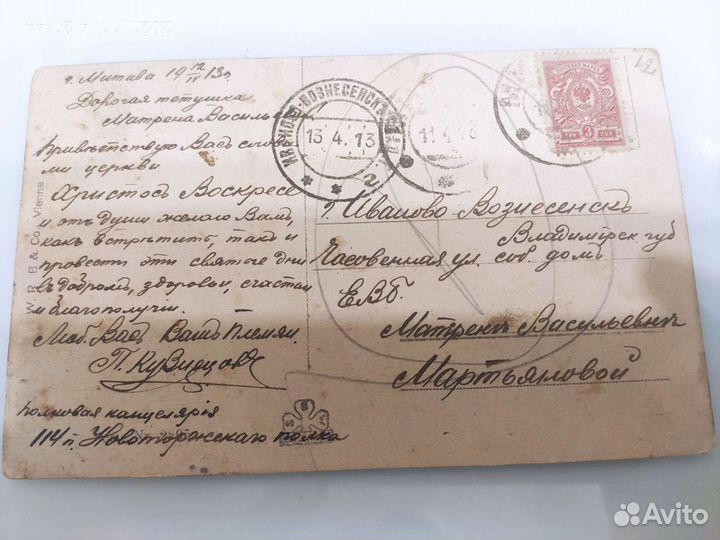 г. Митава 19 12/IV 13г.
Дорогая тетушка
Матрена Васильевна
Привѣтствую Васъ слова
ми церкви
Христосъ Воскресе
и отъ души желаю Вамъ,
какъ встрѣтить, такъ и
провести эти святые дни
въ добромъ, здоровьи, счастьи
и благополучіи.
Люб. Васъ Вашъ Племян.
П. Кузнецовъ
Полковая канцелярія
114 п. Новоторжскаго полка
W. R. B. & Co, Vienne
ИВАНОВО-ВОЗНЕСЕНСКЪ
13.4.13
2
11.4.13
3
КОП
12
г. Иваново Вознесенскъ
Владимірск. губ
Часовенная ул. соб. домъ
ЕВБ.
Матренѣ Васильевнѣ
Мартьяновой
Avito